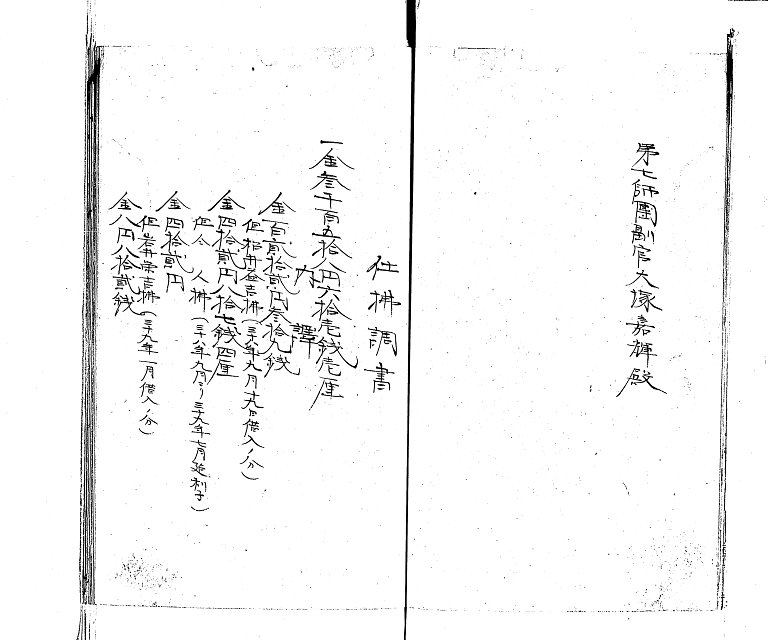 第七師團副官大塚嘉輝殿
仕拂調書
一金叁千百五拾八円六拾壱銭壱厘
内譯
金百貳拾貳円叁拾九銭
但松井登吉拂(三十八年九月十九日借入ノ分)
金四拾貳円八拾七銭四厘
但仝人拂(三十八年九月ヨリ三十九年七月迄利子)
金四拾貳円
但岩井栄吉拂(三十九年一月借入ノ分)
金八円八拾貳銭